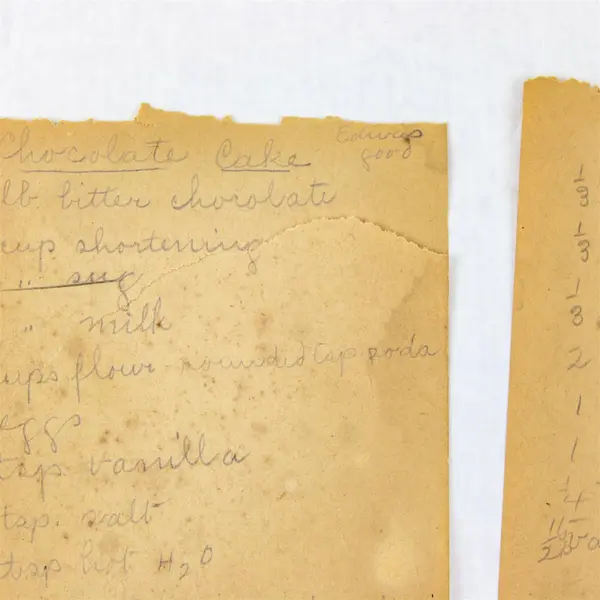 Chocolate Cake
Edwins
good
lb. bitter chocolate
cup shortening
" sug
" milk
cups flour rounded tsp soda
eggs
tsp vanilla
tsp. salt
tsp hot H2O
1/3
1/3
1/3
2
1
1
1/4